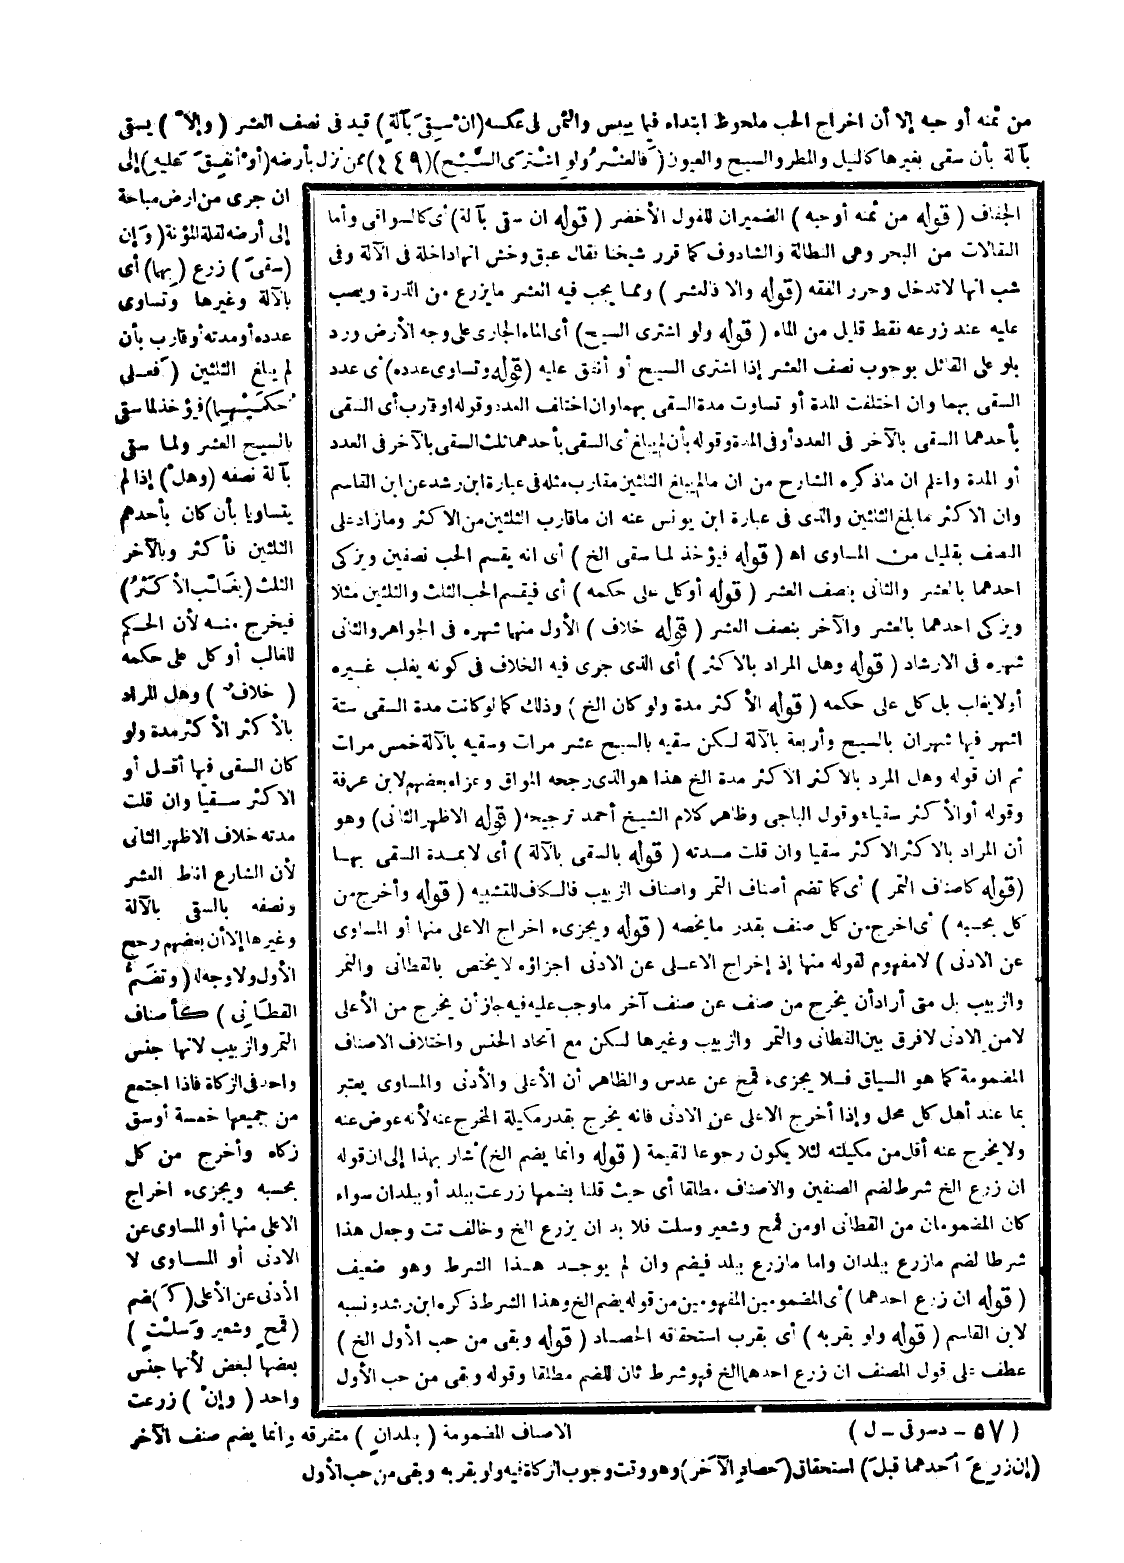 من ثمنه أو حبه إلا أن اخراج الحب ملحوظ ابتداء فيما ييبس والثمن فى عكسه (انْ سُقِىَ بآلةٍ) قيد فى نصف العشر (وإلاَّ) يسق
بآلة بأن سقى بغيرها كالنيل والمطر والسيح والعيون (فالعشْرُ ولو اشْتَرى السَّيْحَ) (٤٤٩) ممن نزل بأرضه (أوْ أنفِقَ عليهِ) إلى
ان جرى من ارض مباحة
إلى أرضه لقلة المؤنة (وَإن
سقىَ) زرع (بِهما) أى
بالآلة وغيرها وتساوى
عدده أو مدته أو قارب بأن
لم يبلغ الثلثين (فعلى
حُكمَيْهِما) فيؤخذ لما سقى
بالسيح العشر ولما سقى
بآلة نصفه (وهلْ) إذا لم
يتساويا بأن كان بأحدهم
الثلثين فأكثر وبالآخر
الثلث (يغَلَّب الأكثَرُ)
فيخرج منه لأن الحكم
للغالب أو كل على حكمه
(خلافٌ) وهل المراد
بالأكثر الأكثر مدة ولو
كان السقى فيها أقل أو
الاكثر سقيا وان قلت
مدته خلاف الاظهر الثانى
لأن الشارع اناط العشر
ونصفه بالسقى بالآلة
وغيرها إلا أن بعضهم رجح
الأول ولا وجه له (وتضَمُّ
القطانِى) كأصناف
التمر والزبيب لانها جنس
واحد فى الزكاة فاذا اجتمع
من جميعها خمسة أوسق
زكاه وأخرج من كل
بحسبه ويجزىء اخراج
الاعلى منها أو المساوى عن
الادنى أو المساوى لا
الأدنى عن الأعلى (كَ) ضم
(قمحٍ وشعيرٍ وَسلْتٍ)
بعضها لبعض لأنها جنس
واحد (وإنْ) زرعت
الجفاف (قوله من ثمنه أو حبه) الضميران للفول الأخضر (قوله ان سقى بآلة) أى كالسواقى وأما
النقالات من البحر وهى النطالة والشادوف كما قرر شيخنا فقال عبق وخش انها داخلة فى الآلة وفى
شب انها لا تدخل وحرر الفقه (قوله والا فالعشر) ومما يجب فيه العشر ما يزرع من الذرة ويصب
عليه عند زرعه نقط قليل من الماء (قوله ولو اشترى السيح) أى الماء الجارى على وجه الأرض ورد
بلو على القائل بوجوب نصف العشر إذا اشترى السيح أو أنفق عليه (قوله وتساوى عدده) أى عدد
السقى بهما وان اختلفت المدة أو تساوت مدة السقى بهما وان اختلف العدد وقوله او قارب أى السقى
بأحدهما السقى بالآخر فى العدد أو فى المدة وقوله بأن لم يبلغ أى السقى بأحدهما ثلث السقى بالآخر فى العدد
أو المدة واعلم ان ماذكره الشارح من ان مالم يبلغ الثلثين مقارب مثله فى عبارة ابن رشد عن ابن القاسم
وان الاكثر ما بلغ الثلثين والذى فى عبارة ابن يونس عنه ان ماقارب الثلثين من الاكثر ومازاد على
النصف بقليل من المساوى اه (قوله فيؤخذ لما سقى الخ) أى انه يقسم الحب نصفين ويزكى
احدهما بالعشر والثانى بنصف العشر (قوله أو كل على حكمه) أى فيقسم الحب الثلث والثلثين مثلا
ويزكى احدهما بالعشر والآخر بنصف العشر (قوله خلاف) الأول منها شهره فى الجواهر والثانى
شهره فى الارشاد (قوله وهل المراد بالاكثر) أى الذى جرى فيه الخلاف فى كونه يغلب غيره
أو لا يغلب بل كل على حكمه (قوله الأكثر مدة ولو كان الخ) وذلك كما لو كانت مدة السقى ستة
اشهر فيها شهران بالسيح وأربعة بالآلة لكن سقيه بالسيح عشر مرات وسقيه بالآلة خمس مرات
ثم ان قوله وهل المرد بالاكثر الاكثر مدة الخ هذا هو الذى رجحه المواق وعزاه بعضهم لابن عرفة
وقوله أو الأكثر سقيا هو قول الباجى وظاهر كلام الشيخ أحمد ترجيحه (قوله الاظهر الثانى) وهو
أن المراد بالاكثر الاكثر سقيا وان قلت مدته (قوله بالسقى بالآلة) أى لا بمدة السقى بها
(قوله كاصناف التمر) أى كما تضم أصناف التمر واصناف الزبيب فالكاف للتشبيه (قوله وأخرج من
كل بحسبه) أى اخرج من كل صنف بقدر ما يخصه (قوله ويجزىء اخراج الاعلى منها أو المساوى
عن الادنى) لا مفهوم لقوله منها إذ إخراج الاعلى عن الادنى اجزاؤه لا يختص بالقطانى والتمر
والزبيب بل متى أراد أن يخرج من صنف عن صنف آخر ما وجب عليه فيه جاز أن يخرج من الأعلى
لا من الادنى لا فرق بين القطانى والتمر والزبيب وغيرها لكن مع اتحاد الجنس واختلاف الاصناف
المضمومة كما هو السياق فلا يجزىء قمح عن عدس والظاهر أن الأعلى والأدنى والمساوى يعتبر
بما عند أهل كل محل وإذا أخرج الاعلى عن الادنى فانه يخرج بقدر مكيلة المخرج عنه لأنه عوض عنه
ولا يخرج عنه أقل من مكيلته لئلا يكون رجوعا للقيمة (قوله وانما يضم الخ) أشار بهذا إلى ان قوله
ان زرع الخ شرط لضم الصنفين والاصناف مطلقا أى حيث قلنا بضمها زرعت ببلد أو ببلدان سواء
كان المضمومان من القطانى او من قمح وشعير وسلت فلا بد ان يزرع الخ وخالف تت وجعل هذا
شرطا لضم مازرع ببلدان واما مازرع ببلد فيضم وان لم يوجد هذا الشرط وهو ضعيف
(قوله ان زرع احدهما) أى المضمومين المفهومين من قوله يضم الخ وهذا الشرط ذكره ابن رشد ونسبه
لابن القاسم (قوله ولو بقربه) أى بقرب استحقاقه الحصاد (قوله وبقى من حب الأول الخ)
عطف على قول المصنف ان زرع احدهما الخ فهو شرط ثان للضم مطلقا وقوله وبقى من حب الأول
(٥٧ - دسوقى - ل)
الاصناف المضمومة (ببلدانٍ) متفرقه وانما يضم صنف الآخر
(إن زرِعَ أحدهما قبلَ) استحقاق (حصادِ الآخَرِ) وهو وقت وجوب الزكاة فيه ولو بقربه وبقى من حب الأول